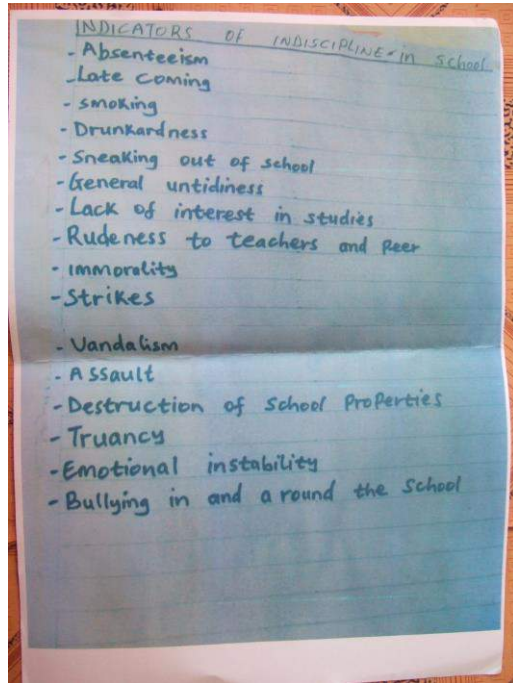 INDICATORS OF INDISCIPLINE in School
- Absenteeism
- Late Coming
- smoking
- Drunkardness
- Sneaking out of school
- General untidiness
- Lack of interest in studies
- Rudeness to teachers and Peer
- immorality
- Strikes
- Vandalism
- Assault
- Destruction of School Properties
- Truancy
- Emotional instability
- Bullying in and around the School